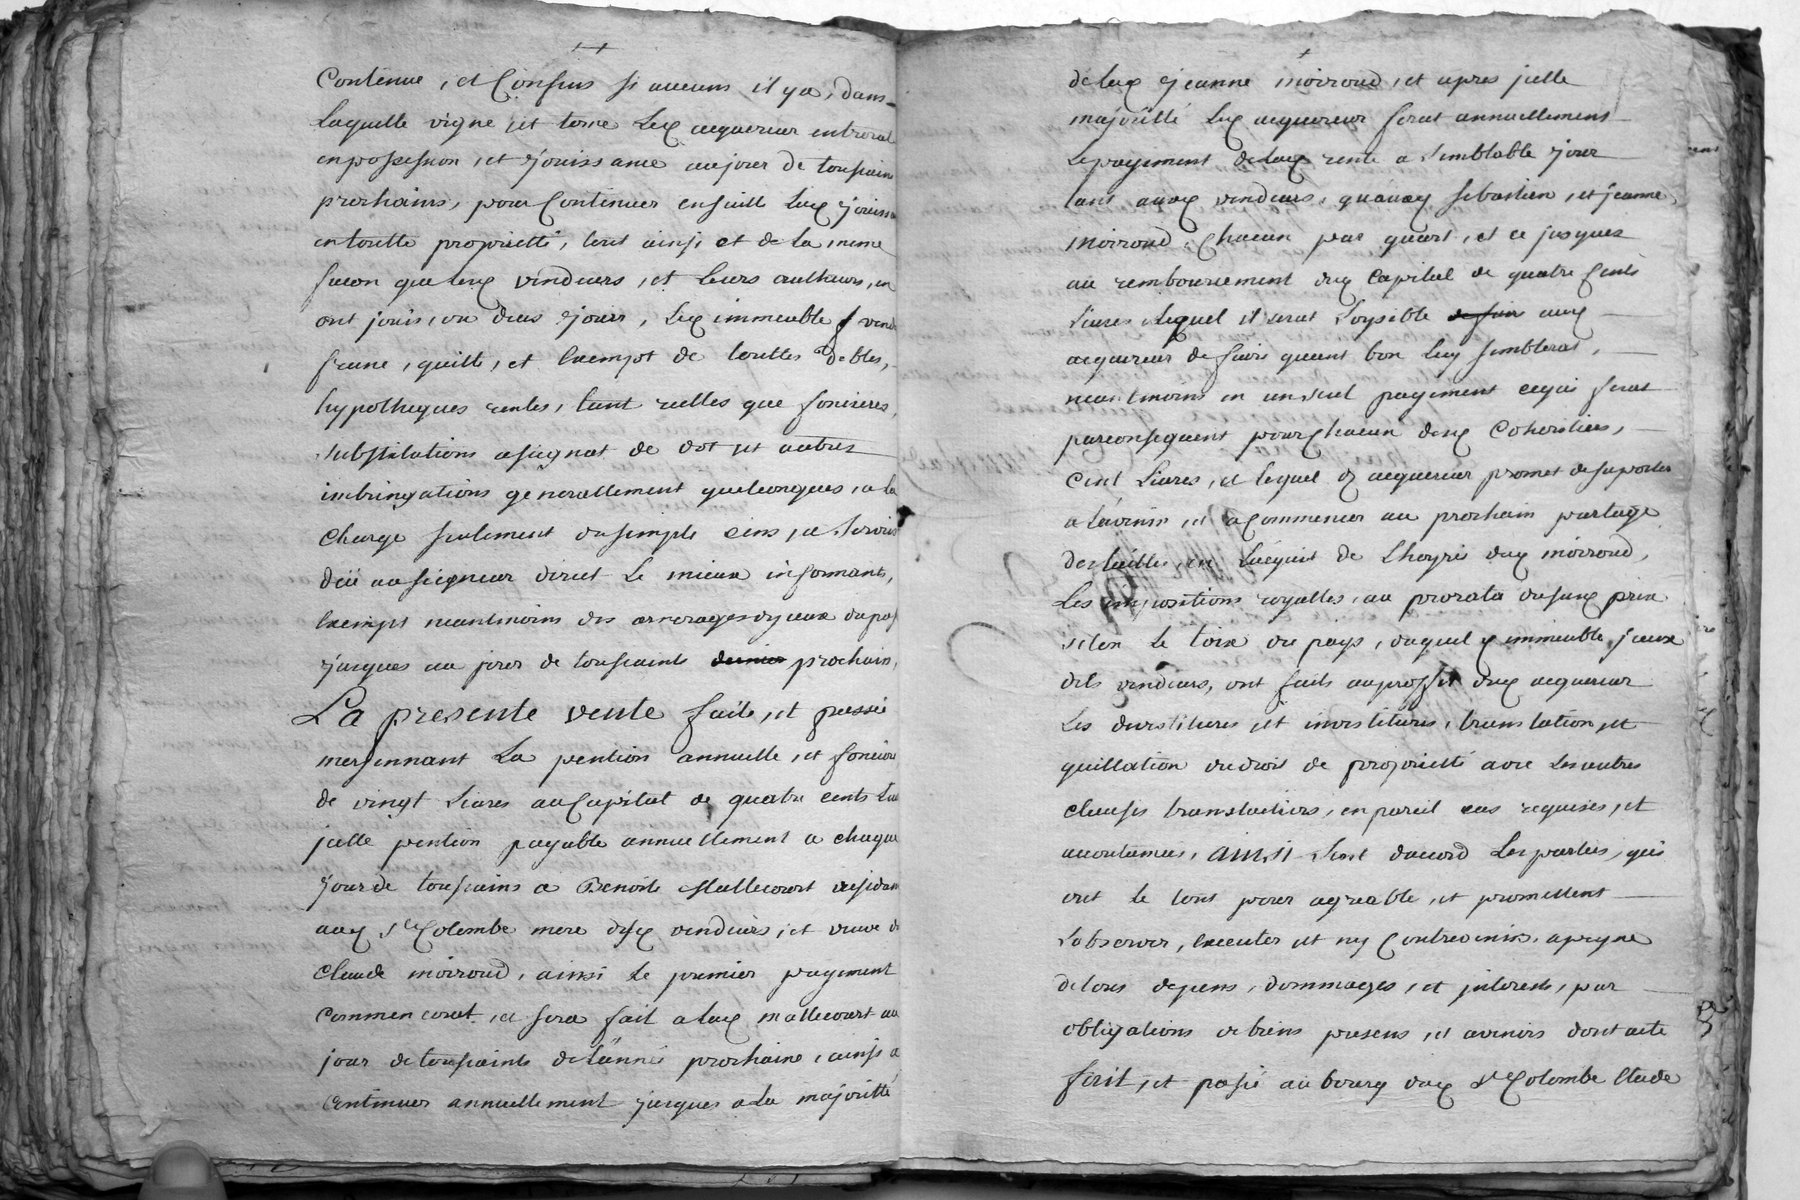 contenue, et Confins si aucuns il ya, dans
Laquelle vigne et terre Led acquereur entrerat
en possession, et jouissance aujour de toussaint
prochains, pour Continuer ensuitte Lad jouiss
entoutte proprietté, tout ainsi et de la meme
facon que lesd vendeurs, et leurs autheurs, en
ont jouis, ou deus jouir, Led immeuble vend
franc, quitte, et Exempt de touttes debtes,
hypotheques rentes, tant reelles que foncieres,
substitutions assignat de dot et autres
imbringations generallement quelconques, a la
charge seulement du simple cens, et servis
deü au seigneur direct le mieux informants,
Exempt neantmoins des arrerages dyceux du pass
jusques au jour de toussaints dernier prochain,
La presente vente faite, et passée
moyennant La pention annuelle, et fonciere
de vingt Livres au Capital de quatre cents Liv
jcelle pention payable annuellement a chaque
jour de toussains a Benoite Mallecourt residan
aud St Colombe mere desd vendeurs, et veuve d
claude moiroud, ainsi le premier payement
commencerat, et sera fait a lad mallecourt au
jour de toussaints de Lannée prochaine, ainsi a
continuer annuellement jusques a La majoritté
delad jeanne moiroud, et apres jcelle
majoritté Led acquereur ferat annuellement
Le payement delad rente a semblable jour
tant auxd vendeurs, quauxd sebastien, et jeanne,
moiroud, Chacun par quart, et ce jusques
au remboursement dud Capital de quatre Cents
Livres Lequel il serat Loysible de faire aud
acquereur de faire quant bon luy semblerat,
neantmoins en un seul payement ce qui ferat
parconsequent pour chacun desd Coheritiers,
cent Livres, et lequel d acquereur promet de suporter
a Lavenir, et a Commencer au prochain partage
des tailles, en Lacquit de Lhoyrie dud moiroud,
Les impositions royalles, au prorata dusd prix
selon le toix du pays, duquel d immeuble, jceux
dits vendeurs, ont faits au proffit dud acquereur
Les devestitures et investitures, translation et
quittation du droit de proprietté avec Les autres
clauses translatives, en pareil cas requises, et
acoutumés, ainsi sont daccord Les parties, qui
ont le tout pour agreable, et promettent
Lobserver, executer et ny Contrevenir, a peyne
de tous depens, dommages, et jnterests, par
obligations de biens presens, et avenirs dont acte
fait, et passé au bourg dud St Colombe Etude